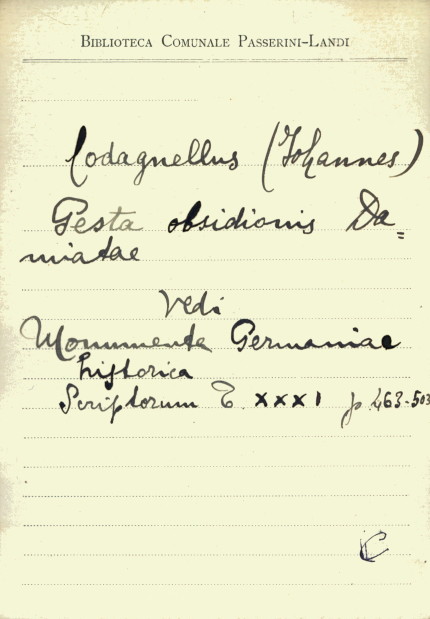 BIBLIOTECA COMUNALE PASSERINI-LANDI
Codagnellus (Johannes)
Gesta obsidionis Da=
miatae
Vedi
Monumenta Germaniae
historica
Scriptorum T. XXXI p. 463-503
C